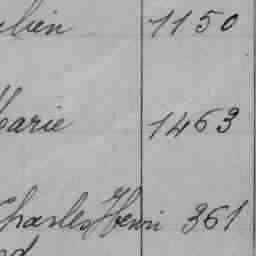 1150
Marie 1463
Charles Henri 361